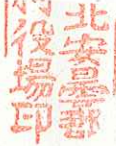 北安曇郡
村役場印